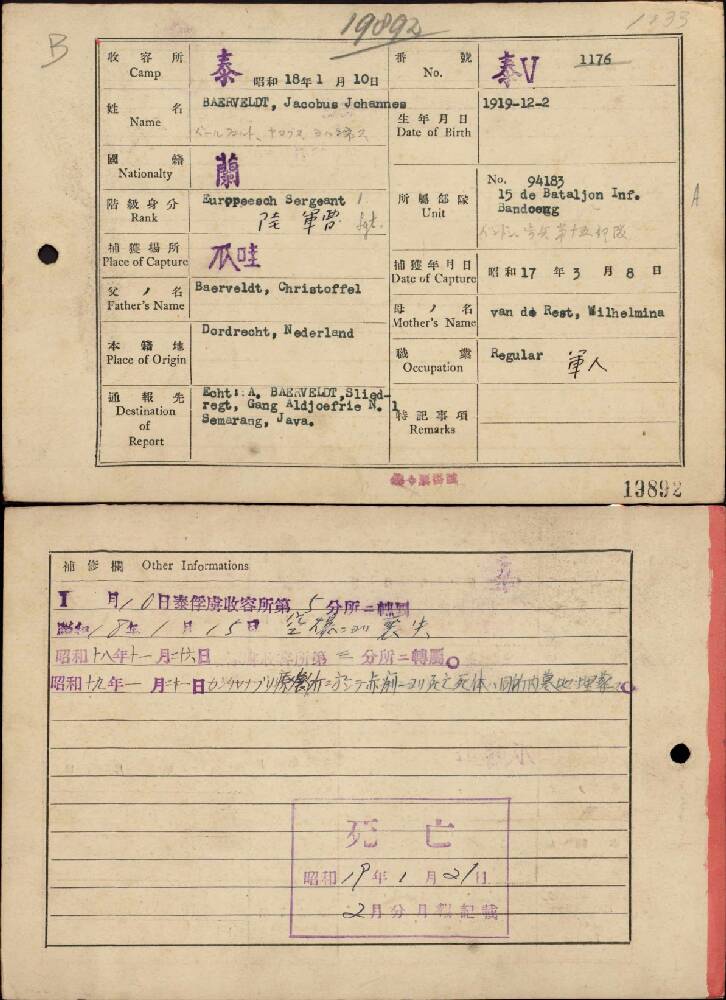 B
19892
1133
收容所
Camp
泰
昭和 18年1月10日
番號
No.
泰V
1176
姓名
Name
BAERVELDT, Jacobus Johannes
生年月日
Date of Birth
1919-12-2
國籍
Nationalty
蘭
階級身分
Rank
Europeesch Sergeant
陸軍曹
Sgt.
所屬部隊
Unit
No. 94183
15 de Bataljon Inf.
Bandoeng
A
捕獲場所
Place of Capture
爪哇
捕獲年月日
Date of Capture
昭和17年3月8日
父ノ名
Father's Name
Baerveldt, Christoffel
母ノ名
Mother's Name
van de Rest, Wilhelmina
本籍地
Place of Origin
Dordrecht, Nederland
職業
Occupation
Regular 軍人
通報先
Destination
of
Report
Echt: A. BAERVELDT, Slied-
regt, Gang Aldjoefrie N. 1
Semarang, Java.
特記事項
Remarks
13892
補修欄 Other Informations
I 月10日泰俘虜收容所第5分所ニ轉属
昭和18年1月15日
昭和十八年十一月二十六日 第二分所ニ轉屬
昭和十九年一月二十一日
死亡
昭和19年1月21日
2月分月報記載